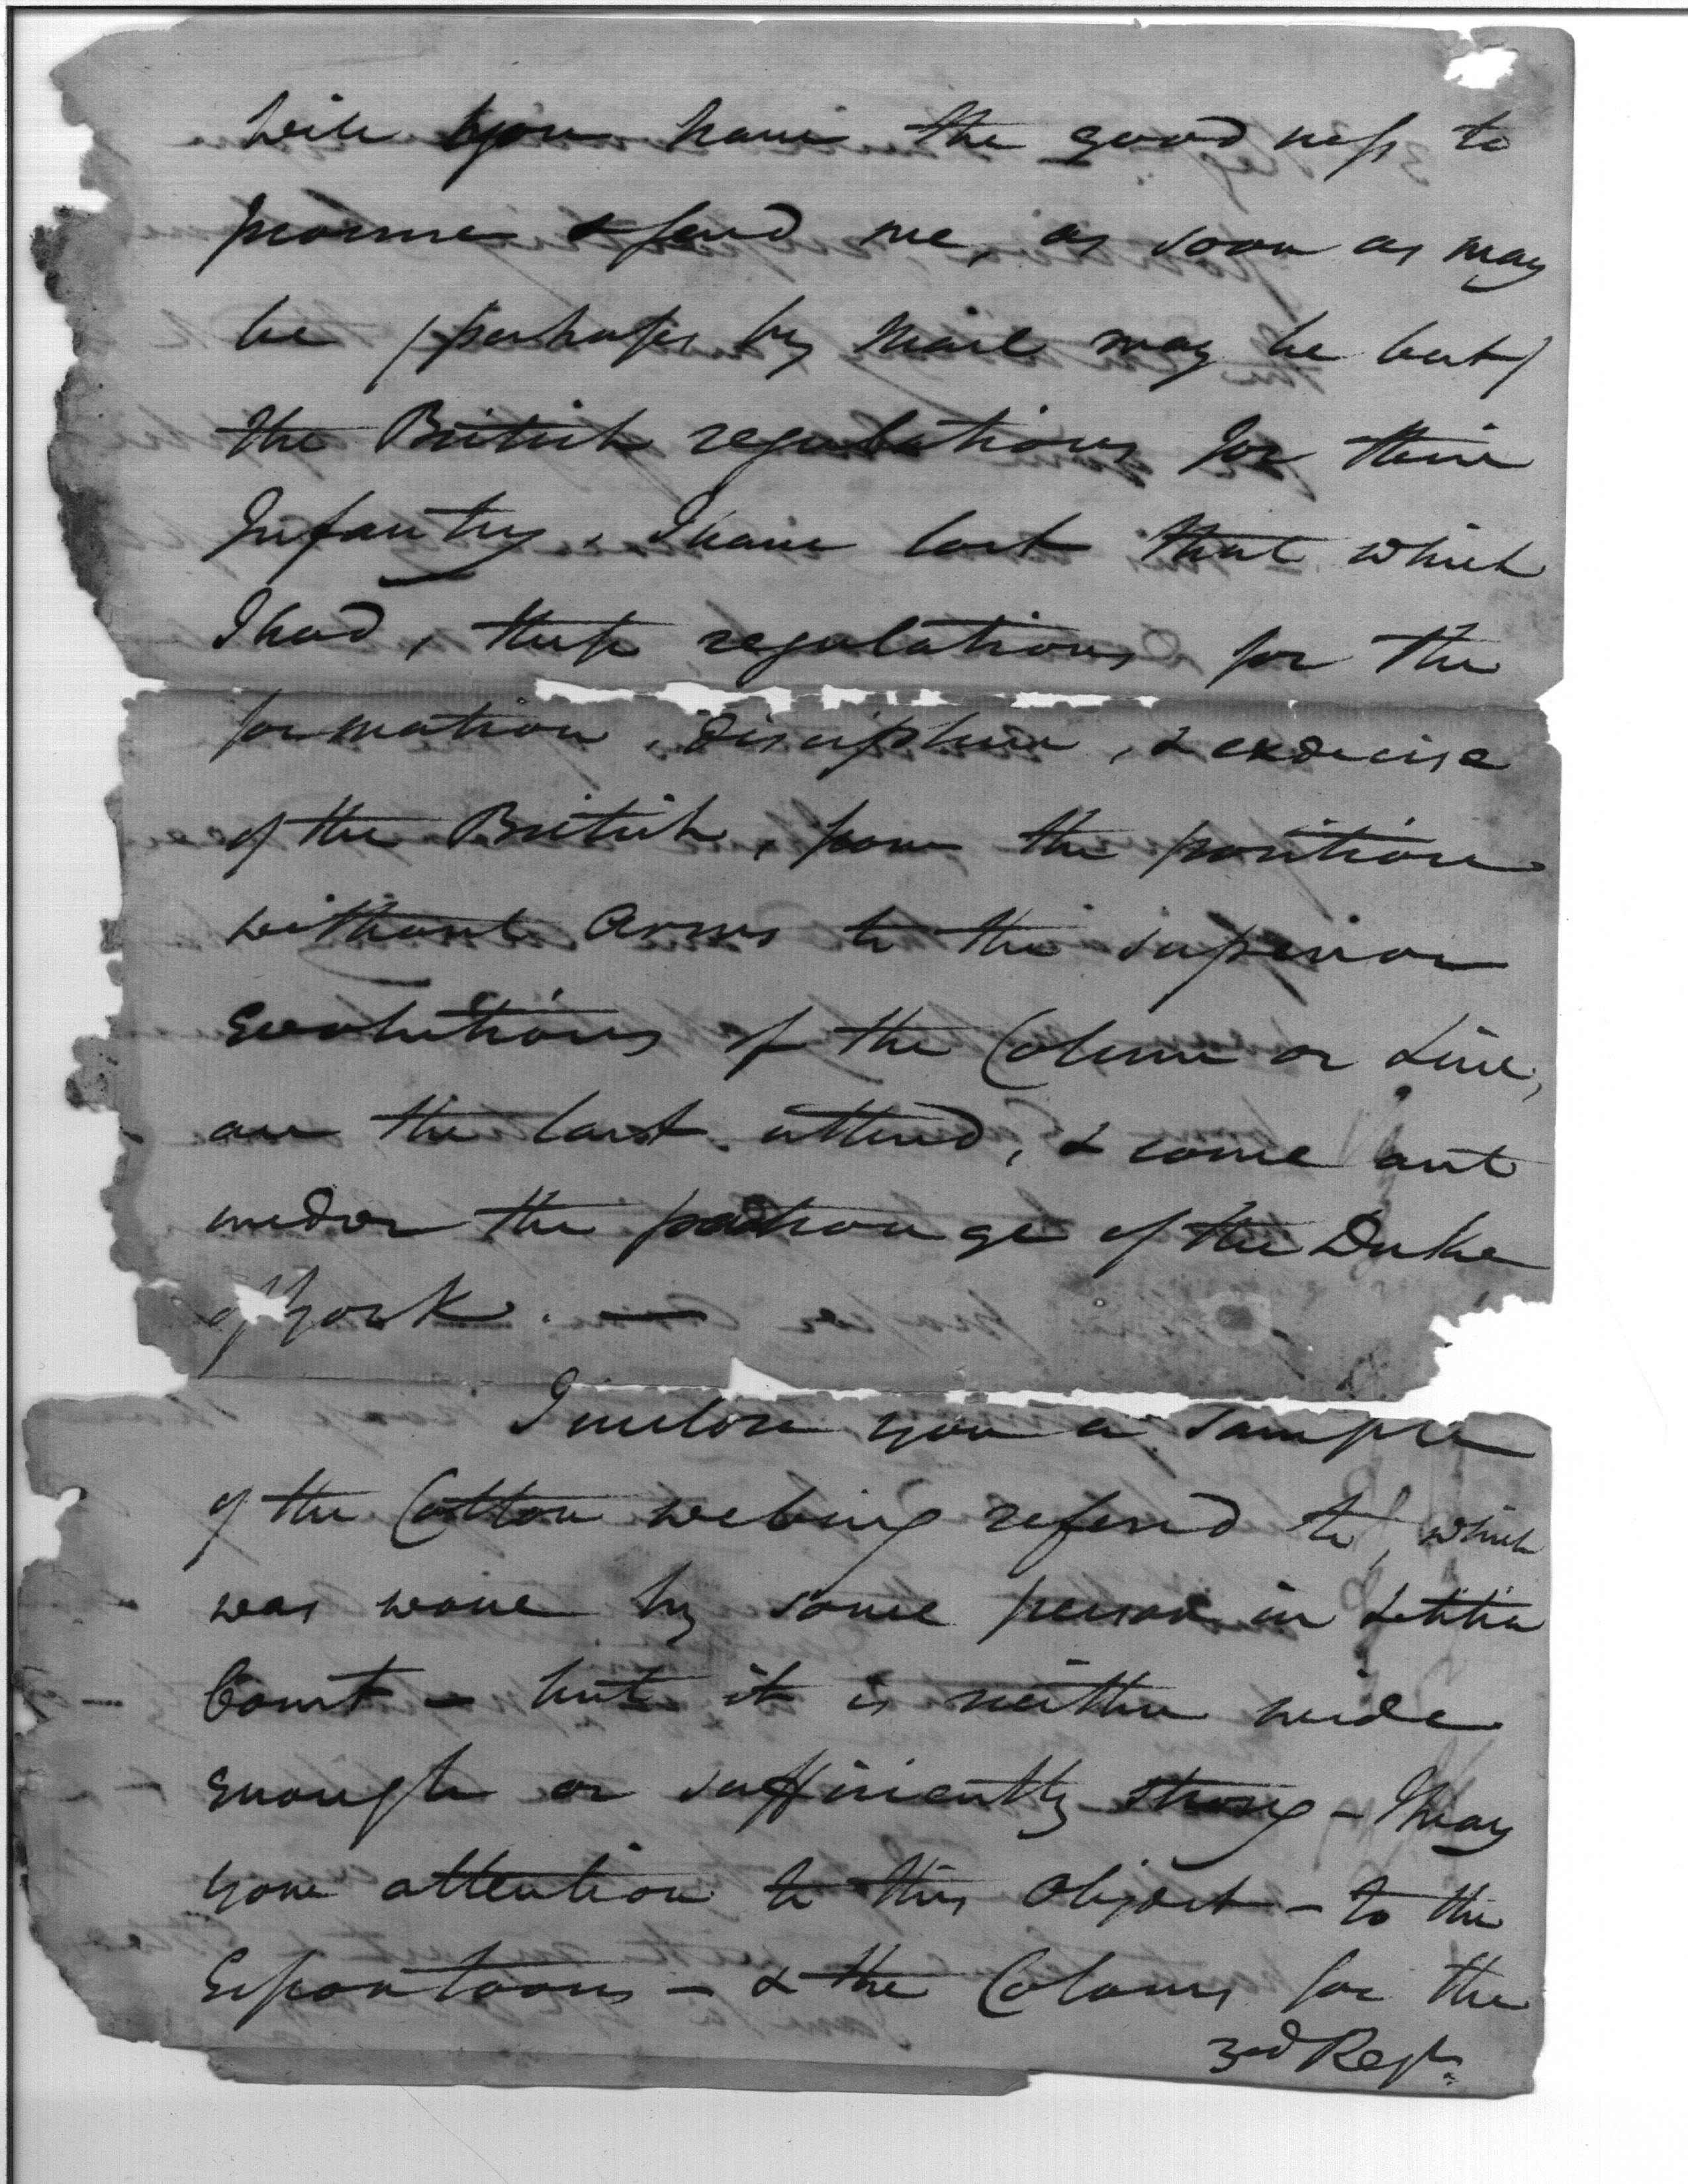 Will you have the good ness to
procure & send me, as soon as may
be /perhaps by Mail may be best/
the British regulations for their
Infantry. I have lost that which
I had, these regulations for the
formation, Discipline, & exercise
of the British, from the position
without Arms to the superior
Evolutions of the Column or Line,
are the last uttered, & come out
under the patronage of the Duke
of York. —
I inclose you a sample
of the Cotton webing refered to, which
was wove by some person in Letitia
Court – but it is neither wide
enough or sufficiently strong – I pray
your attention to this Object – to the
Espontoons – & the Colours for the
3rd Regt.